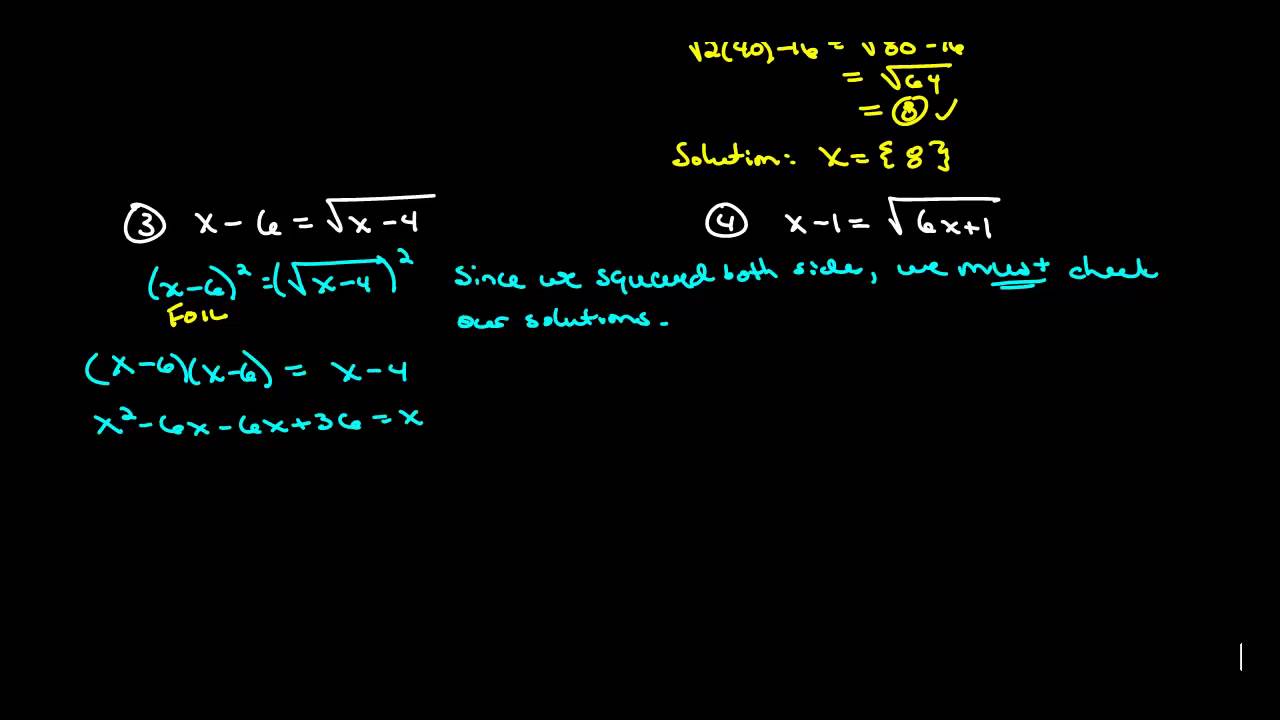 √2(40)-16 = √80-16
= √64
= 8 ✓
Solution: x = {8}
③ x - 6 = √x-4
④ x-1 = √6x+1
(x-6)² = (√x-4)²
FOIL
Since we squared both side, we must check
our solutions.
(x-6)(x-6) = x-4
x²-6x-6x+36 = x